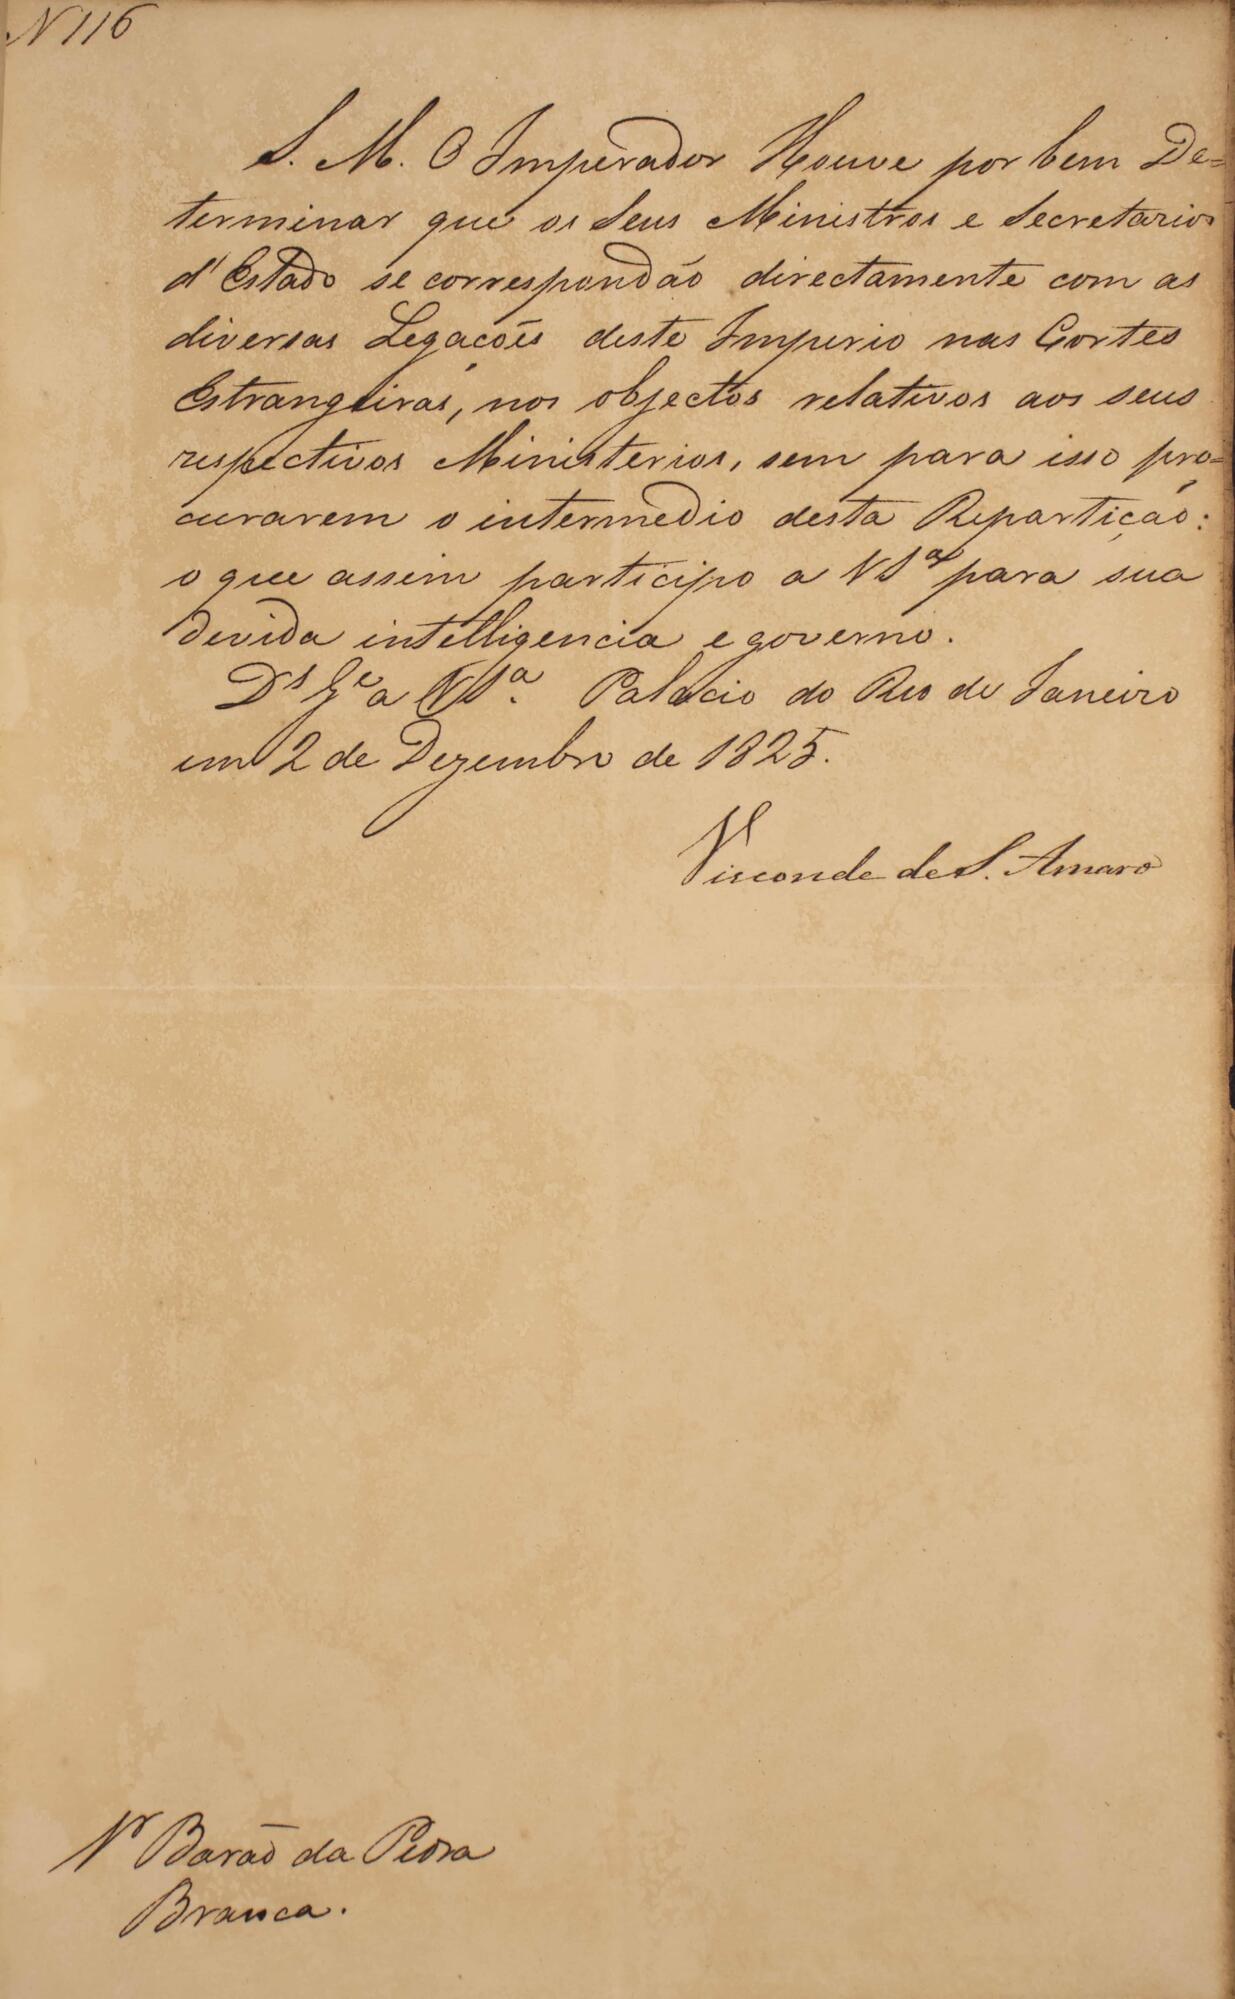 N 116
S. M. O Imperador Houve por bem De=
terminar que os Seus Ministros e Secretarios
d'Estado se correspondão directamente com as
diversas Legações deste Imperio nas Cortes
Estrangeiras, nos objectos relativos aos seus
respectivos Ministerios, sem para isso pro=
curarem o intermedio desta Repartição:
o que assim participo a VSª para sua
devida intelligencia e governo.
Ds Ge a VSª. Palacio do Rio de Janeiro
em 2 de Dezembro de 1825.
Visconde de S. Amaro
Nr Barão da Pedra
Branca.